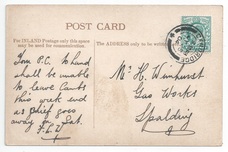 POST CARD
For INLAND Postage only this space
may be used for communication.
The ADDRESS only to be
Your P.C. to hand
shall be unable
to leave Cambs
this week end
as Chief goes
away on Sat.
Mr H. Wimhurst
Gas Works
Spalding